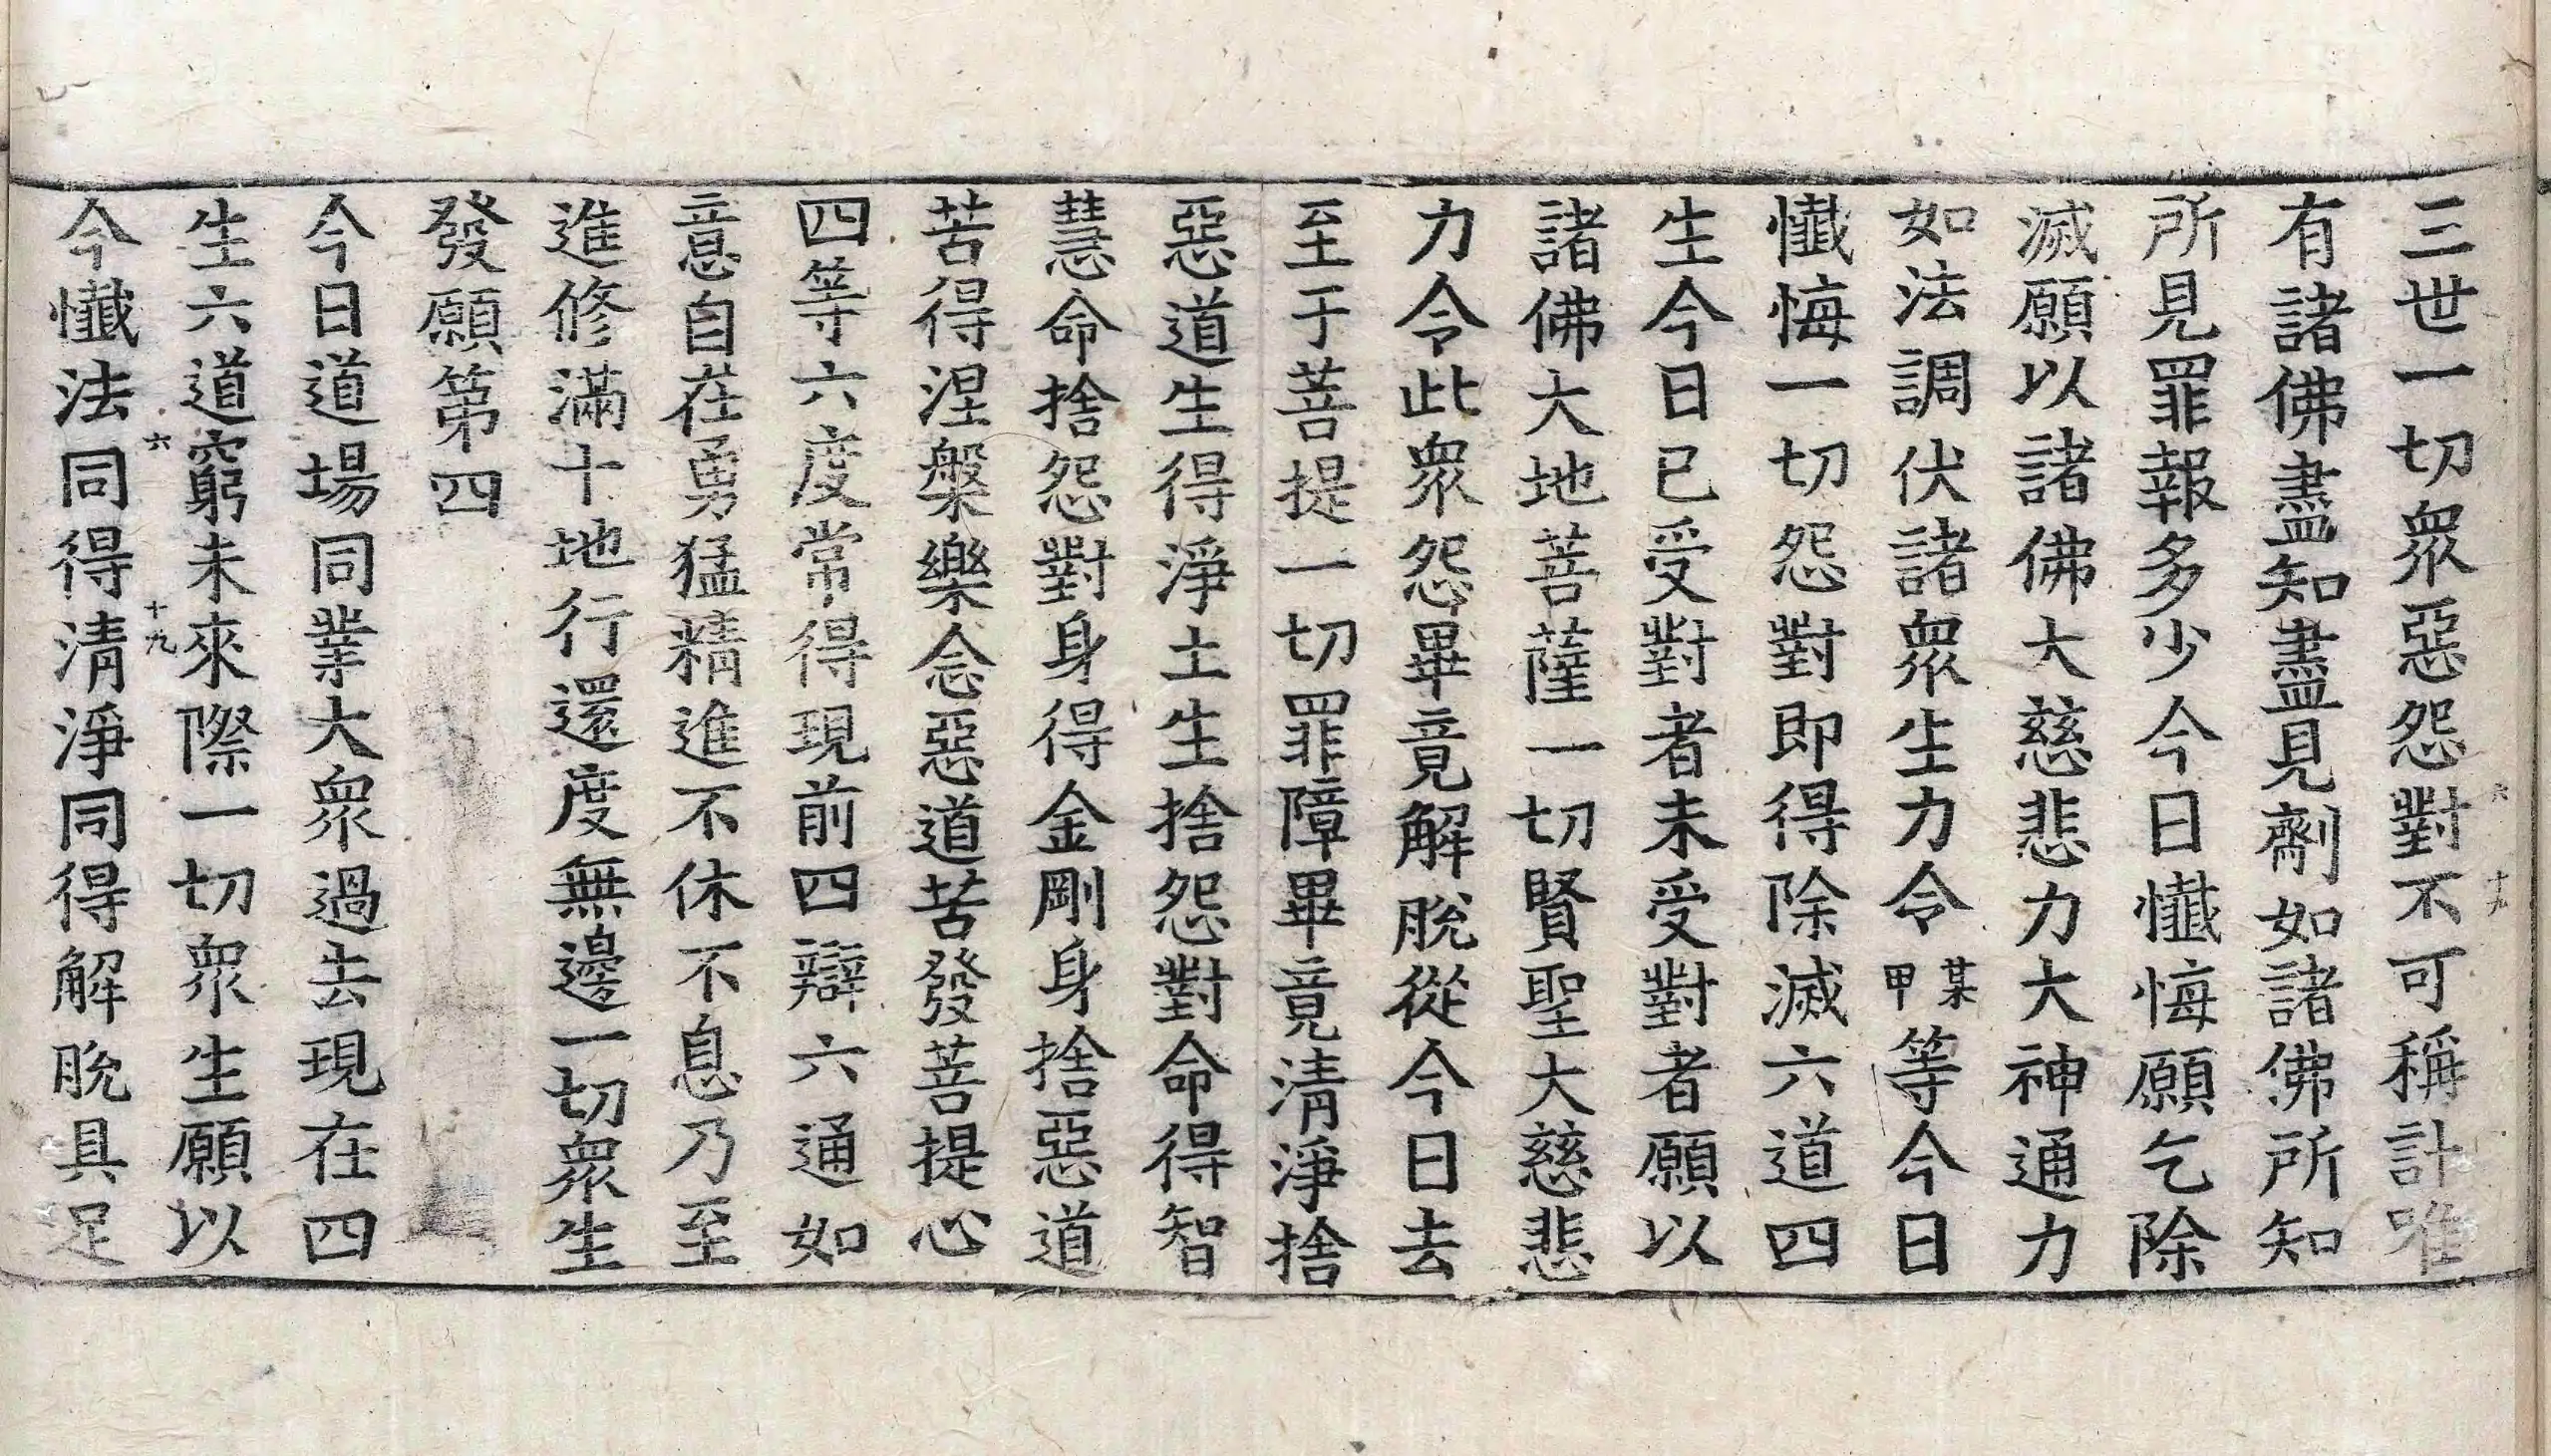 三世一切眾惡怨對不可稱計唯
有諸佛盡知盡見劑如諸佛所知
所見罪報多少今日懺悔願乞除
滅願以諸佛大慈悲力大神通力
如法調伏諸眾生力令某甲等今日
懺悔一切怨對即得除滅六道四
生今日已受對者未受對者願以
諸佛大地菩薩一切賢聖大慈悲
力令此眾怨畢竟解脫從今日去
至于菩提一切罪障畢竟清淨捨
惡道生得淨土生捨怨對命得智
慧命捨怨對身得金剛身捨惡道
苦得涅槃樂念惡道苦發菩提心
四等六度常得現前四辯六通如
意自在勇猛精進不休不息乃至
進修滿十地行還度無邊一切眾生
發願第四
今日道場同業大眾過去現在四
生六道窮未來際一切眾生願以
今懺法同得清淨同得解脫具足
六 十九
六 十九